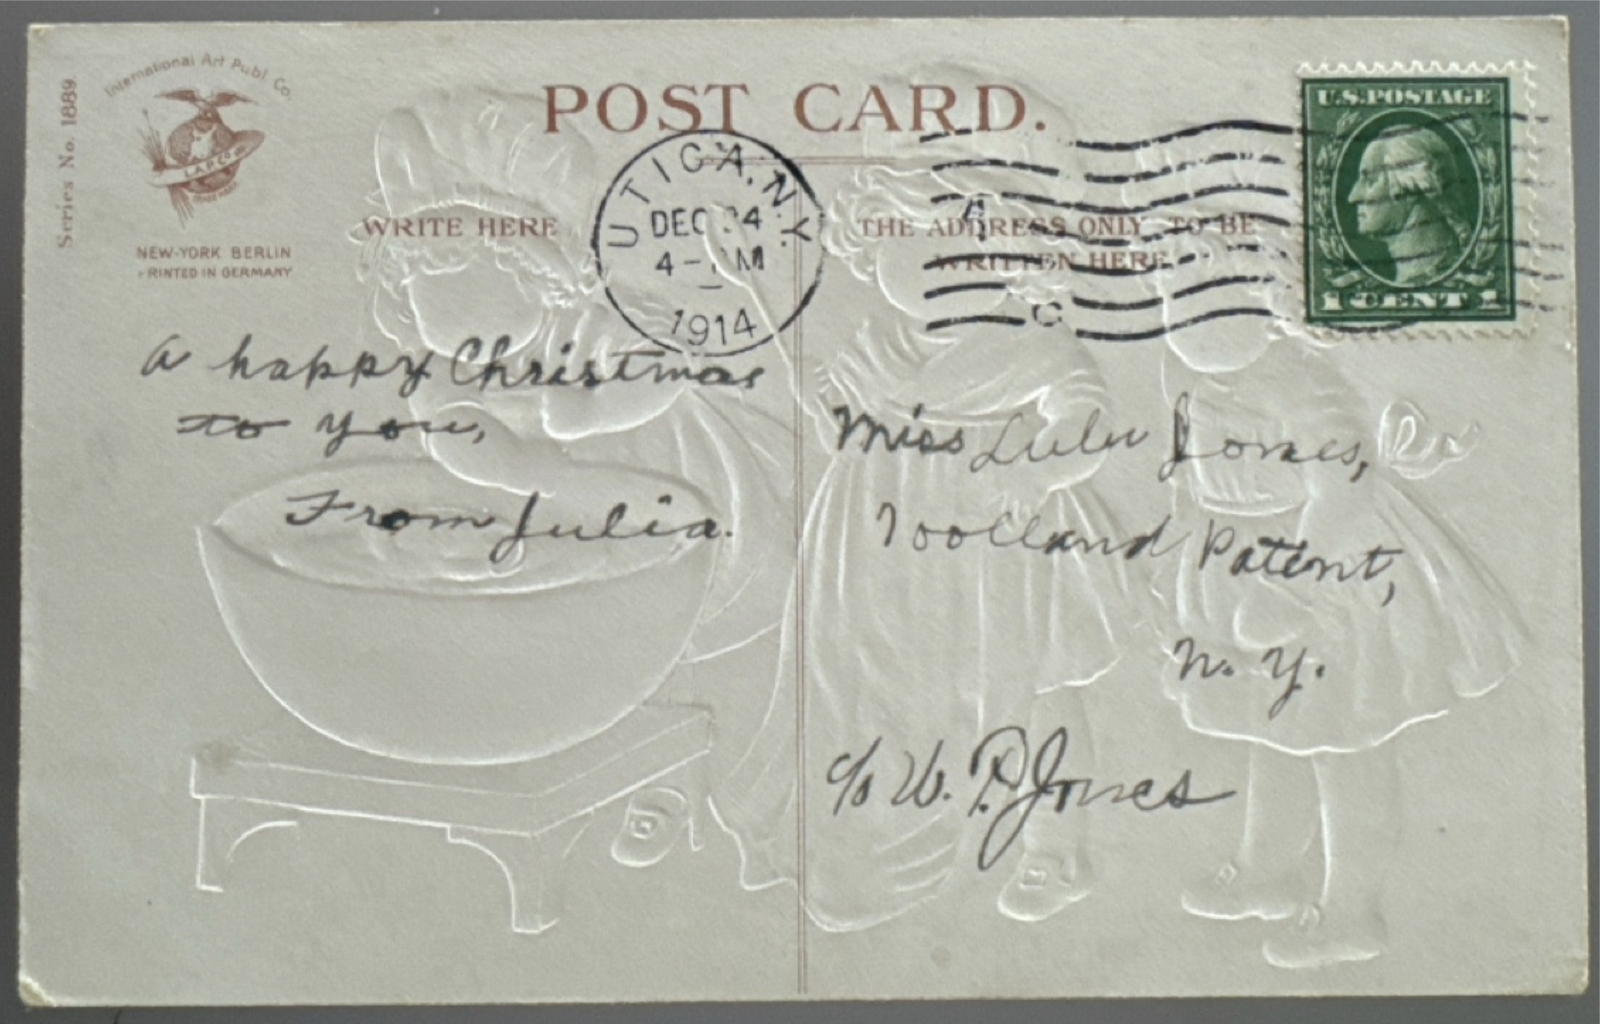 Series No. 1889
International Art Publ. Co.
I.A.P.Co.
NEW-YORK BERLIN
PRINTED IN GERMANY
POST CARD.
WRITE HERE
THE ADDRESS ONLY TO BE
WRITTEN HERE
UTICA, N.Y.
DEC 24
4 - PM
1914
A
C
U.S. POSTAGE
1 CENT 1
A happy Christmas
to you,
From Julia.
Miss Lulu Jones,
Holland Patent,
N. Y.
c/o W. P. Jones